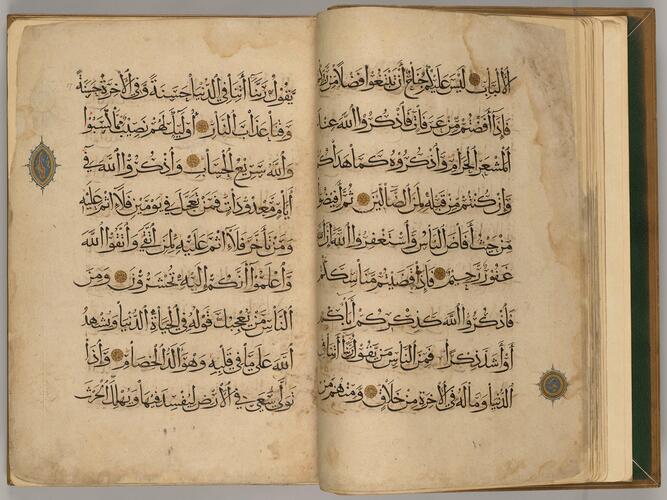 الألباب ليس عليكم جناح أن تبتغوا فضلا من ربكم
فإذا أفضتم من عرفات فاذكروا الله عند
المشعر الحرام واذكروه كما هداكم
وإن كنتم من قبله لمن الضالين ثم أفيضوا
من حيث أفاض الناس واستغفروا الله إن الله
غفور رحيم فإذا قضيتم مناسككم
فاذكروا الله كذكركم آباءكم
أو أشد ذكرا فمن الناس من يقول ربنا آتنا في
الدنيا وما له في الآخرة من خلاق ومنهم من
يقول ربنا آتنا في الدنيا حسنة وفي الآخرة حسنة
وقنا عذاب النار أولئك لهم نصيب مما كسبوا
والله سريع الحساب واذكروا الله في
أيام معدودات فمن تعجل في يومين فلا إثم عليه
ومن تأخر فلا إثم عليه لمن اتقى واتقوا الله
واعلموا أنكم إليه تحشرون ومن
الناس من يعجبك قوله في الحياة الدنيا ويشهد
الله على ما في قلبه وهو ألد الخصام وإذا
تولى سعى في الأرض ليفسد فيها ويهلك الحرث